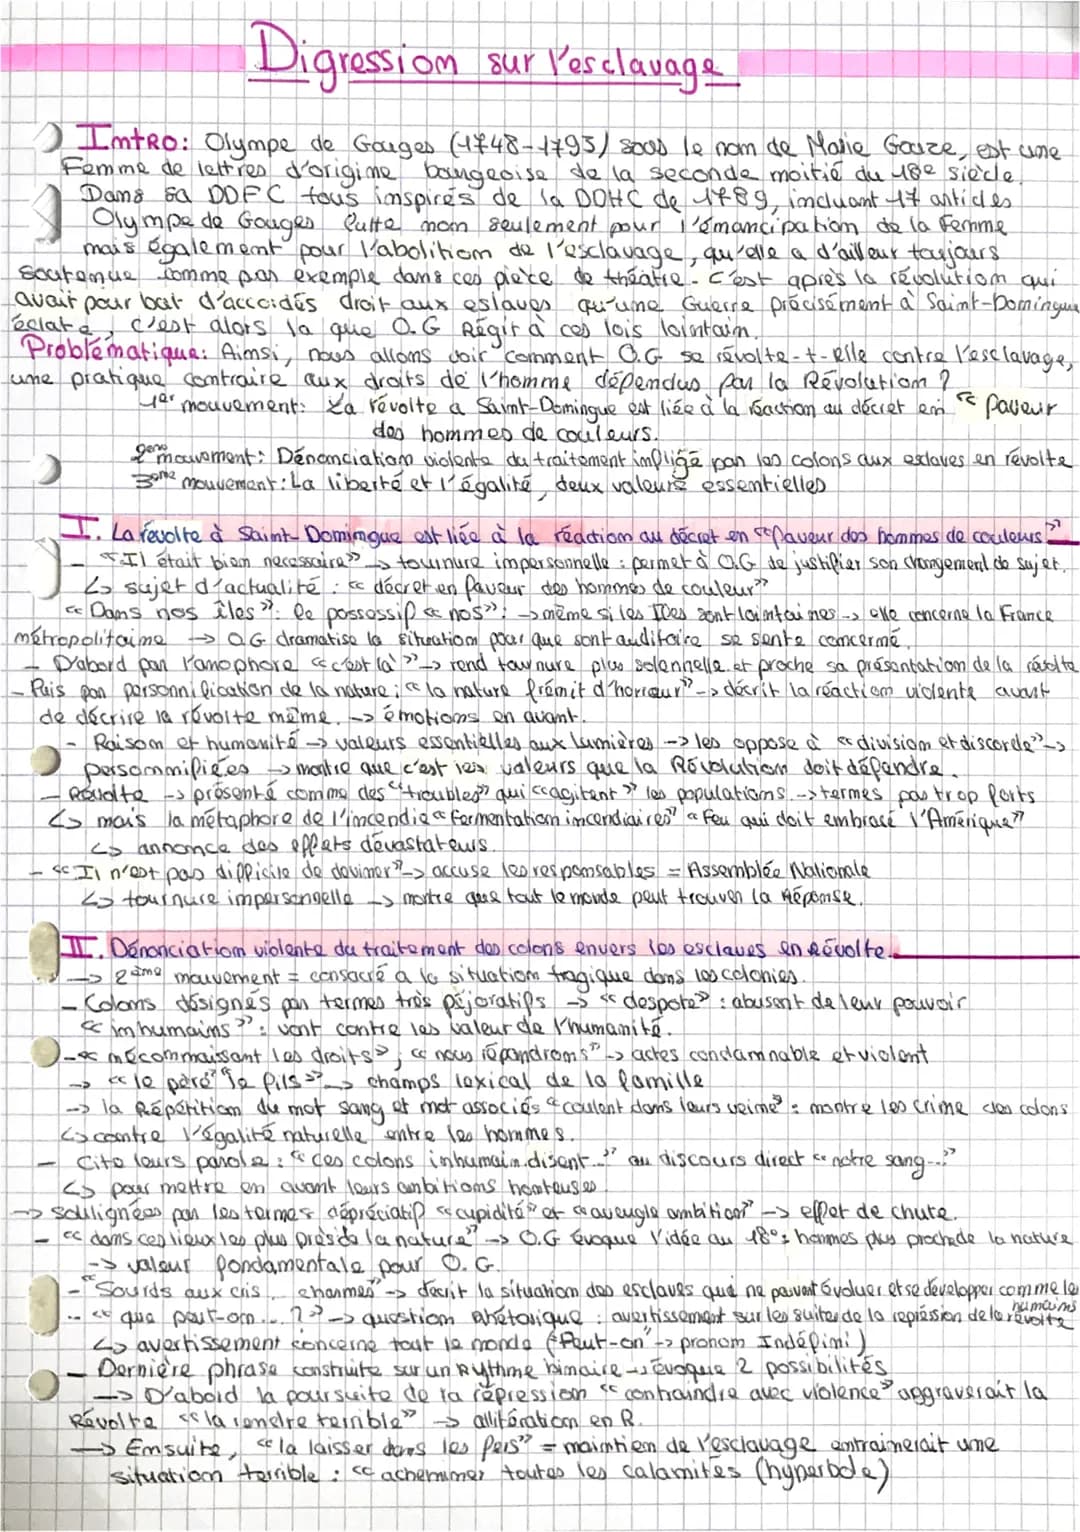 Digression sur l'esclavage
Intro: Olympe de Gouges (1748-1793) sous le nom de Marie Gouze, est une
Femme de lettres d'origine bourgeoise de la seconde moitié du 18e siècle.
Dans sa DDFC tous inspirés de la DDHC de 1789, incluant 17 articles
Olympe de Gouges lutte non seulement pour l'émancipation de la Femme
mais également pour l'abolition de l'esclavage, qu'elle a d'ailleur toujours
soutenue comme par exemple dans ces pièce de théatre. C'est après la révolution qui
avait pour but d'accordés droit aux eslaves qu'une Guerre précisément à Saint-Domingue
éclate, c'est alors la que O.G Régit à ces lois lointain.
Problématique: Ainsi, nous allons voir comment O.G se révolte-t-elle contre l'esclavage,
une pratique contraire aux droits de l'homme défendus par la Révolution ?
1er mouvement: La révolte a Saint-Domingue est liée à la réaction au décret en "faveur
des hommes de couleurs.
2ème mouvement: Dénonciation violente du traitement infligé par les colons aux esclaves en révolte
3ème mouvement: La liberté et l'égalité, deux valeurs essentielles
I. La révolte à Saint-Domingue est liée à la réaction au décret en "faveur des hommes de couleurs"
- "Il était bien necessaire" → tournure impersonnelle : permet à O.G de justifier son changement de sujet.
↳ sujet d'actualité : "décret en faveur des hommes de couleur"
"Dans nos îles": le possessif "nos": → même si les Îles sont lointaines → elle concerne la France
métropolitaine → O.G dramatise la situation pour que sont auditoire se sente concerné.
- D'abord par l'anaphore "c'est là" → rend tournure plus solennelle et proche sa présentation de la révolte
- Puis par personnification de la nature; "la nature frémit d'horreur" → décrit la réaction violente avant
de décrire la révolte même. → émotions en avant.
- Raison et humanité → valeurs essentielles aux lumières → les oppose à "division et discorde" →
personnifiées → montre que c'est les valeurs que la Révolution doit défendre.
- Révolte → présenté comme des "troubles" qui "agitent" les populations. → termes pas trop forts
↳ mais la métaphore de l'incendie "fermentation incendiaires" "Feu qui doit embrasé l'Amérique"
↳ annonce des effets dévastateurs.
- "Il n'est pas difficile de deviner" → accuse les responsables = Assemblée Nationale
↳ tournure impersonnelle → montre que tout le monde peut trouver la Réponse.
II. Dénonciation violente du traitement des colons envers les esclaves en Révolte.
→ 2ème mouvement = consacré à la situation tragique dans les colonies.
- Colons désignés par termes très péjoratifs → "despote" : abusent de leur pouvoir
"inhumains" : vont contre les valeur de l'humanité.
- "méconnaissant les droits", "nous répondrons" → actes condamnable et violent
→ "le père" "le fils" → champs lexical de la famille
→ la Répétition du mot sang et mot associés "coulent dans leurs veine" : montre les crime des colons
↳ contre l'égalité naturelle entre les hommes.
- Cite leurs parole : "ces colons inhumain disent..." au discours direct "notre sang..."
↳ pour mettre en avant leurs ambitions honteuses
→ soulignées par les termes dépréciatif "cupidité" et "aveugle ambition" → effet de chute.
- "dans ces lieux les plus près de la nature" → O.G évoque l'idée au 18e: hommes plus proche de la nature
→ valeur fondamentale pour O.G.
- "Sourds aux cris, charmes" → décrit la situation des esclaves qui ne peuvent évoluer et se developper comme les humains
- "que peut-on... ?" → question Rhétorique : avertissement sur les suites de la repression de la révolte
↳ avertissement concerne tout le monde ("Peut-on" → pronom Indéfini)
- Dernière phrase construite sur un Rythme binaire → évoque 2 possibilités
→ D'abord la poursuite de la répression "contraindre avec violence" aggraverait la
Révolte "la rendre terrible" → allitération en R.
→ Ensuite, "la laisser dans les fers" = maintien de l'esclavage entrainerait une
situation terrible : "acheminer toutes les calamités (hyperbole)